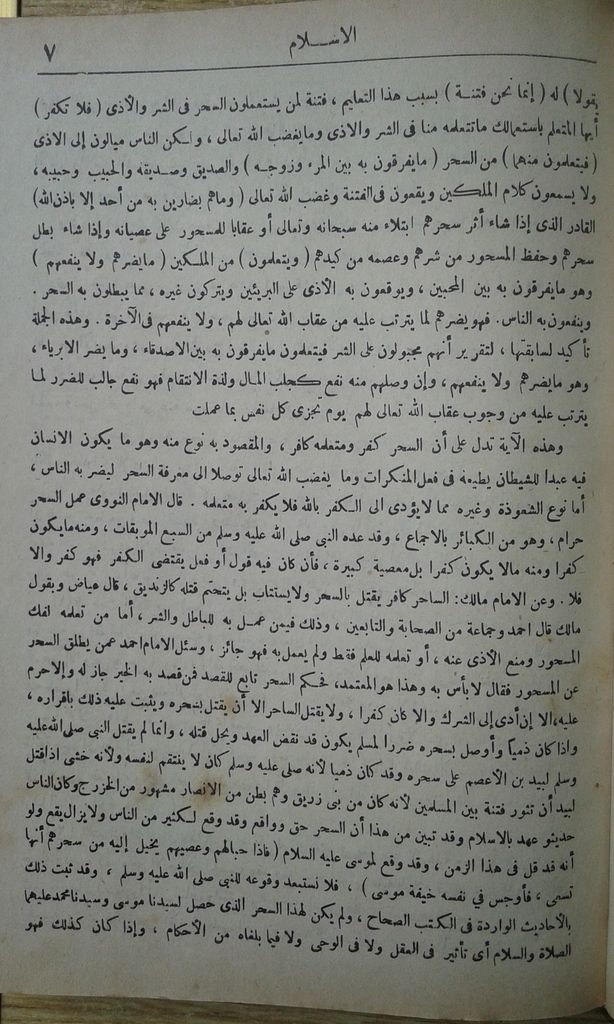 الاسلام
٧
يقولا ) له ( إنما نحن فتنة ) بسبب هذا التعليم ، فتنة لمن يستعملون السحر فى الشر والأذى ( فلا تكفر )
أيها المتعلم باستعمالك ماتتعلمه منا فى الشر والاذى ومايغضب الله تعالى ، ولكن الناس ميالون إلى الاذى
( فيتعلمون منهما ) من السحر ( مايفرقون به بين المرء وزوجه ) والصديق وصديقه والحبيب وحبيبه ،
ولا يسمعون كلام الملكين ويقعون فى الفتنة وغضب الله تعالى ( وماهم بضارين به من أحد إلا باذن الله)
القادر الذى إذا شاء أثر سحرهم ابتلاء منه سبحانه وتعالى أو عقابا للمسحور على عصيانه وإذا شاء بطل
سحرهم وحفظ المسحور من شرهم وعصمه من كيدهم ( ويتعلمون ) من الملكين ( مايضرهم ولا ينفعهم )
وهو مايفرقون به بين المحبين ، ويوقعون به الأذى على البريئين ويتركون غيره ، مما يبطلون به السحر .
وينفعون به الناس . فهو يضرهم لما يترتب عليه من عقاب الله تعالى لهم ، ولا ينفعهم فى الآخرة . وهذه الجملة
تأكيد لسابقتها ، لتقرير أنهم مجبولون على الشر فيتعلمون مايفرقون به بين الاصدقاء ، وما يضر الابرياء ،
وهو مايضرهم ولا ينفعهم ، وإن وصلهم منه نفع كجلب المال ولذة الانتقام فهو نفع جالب للضرر لما
يترتب عليه من وجوب عقاب الله تعالى لهم يوم تجزى كل نفس بما عملت
وهذه الآية تدل على أن السحر كفر ومتعلمه كافر ، والمقصود به نوع منه وهو ما يكون الانسان
فيه عبدا للشيطان يطيعه فى فعل المنكرات وما يغضب الله تعالى توصلا الى معرفة السحر ليضر به الناس ،
أما نوع الشعوذة وغيره مما لا يؤدى الى الكفر بالله فلا يكفر به متعلمه . قال الامام النووى عمل السحر
حرام ، وهو من الكبائر بالاجماع ، وقد عده النبي صلى الله عليه وسلم من السبع الموبقات ، ومنه مايكون
كفرا ومنه مالا يكون كفرا بل معصية كبيرة ، فأن كان فيه قول أو فعل يقتضى الكفر فهو كفر والا
فلا . وعن الامام مالك : الساحر كافر يقتل بالسحر ولا يستتاب بل يتحتم قتله كالزنديق ، قال عياض وبقول
مالك قال احمد وجماعة من الصحابة والتابعين ، وذلك فيمن عمل به للباطل والشر ، أما من تعلمه لفك
المسحور ومنع الأذى عنه ، أو تعلمه للعلم فقط ولم يعمل به فهو جائز ، وسئل الامام احمد عمن يطلق السحر
عن المسحور فقال لا بأس به وهذا هو المعتمد ، فحكم السحر تابع للقصد فمن قصد به الخير جاز له وإلا حرم
عليه ، الا إن أدى إلى الشرك والا كان كفرا ، ولا يقتل الساحر الا أن يقتل بسحره ويثبت عليه ذلك باقراره ،
واذا كان ذمياً وأوصل بسحره ضررا لمسلم يكون قد نقض العهد ويحل قتله ، وانما لم يقتل النبى صلى الله عليه
وسلم لبيد بن الأعصم على سحره وقد كان ذميا لأنه صلى عليه وسلم كان لا ينتقم لنفسه ولأنه خشى اذا قتل
لبيد أن تثور فتنة بين المسلمين لأنه كان من بنى زريق وهم بطن من الانصار مشهور من الخزرج وكان الناس
حديثو عهد بالاسلام وقد تبين من هذا أن السحر حق وواقع وقد وقع لكثير من الناس ولا يزال يقع ولو
أنه قد قل فى هذا الزمن ، وقد وقع لموسى عليه السلام ( فاذا حبالهم وعصيهم يخيل إليه من سحرهم أنها
تسعى ، فأوجس في نفسه خيفة موسى ) ، فلا نستبعد وقوعه للنبى صلى الله عليه وسلم ، وقد ثبت ذلك
بالأحاديث الواردة فى الكتب الصحاح ، ولم يكن لهذا السحر الذى حصل لسيدنا موسى وسيدنا محمد عليهما
الصلاة والسلام أى تأثير فى العقل ولا فى الوحى ولا فيما بلغاه من الأحكام ، وإذا كان كذلك فهو